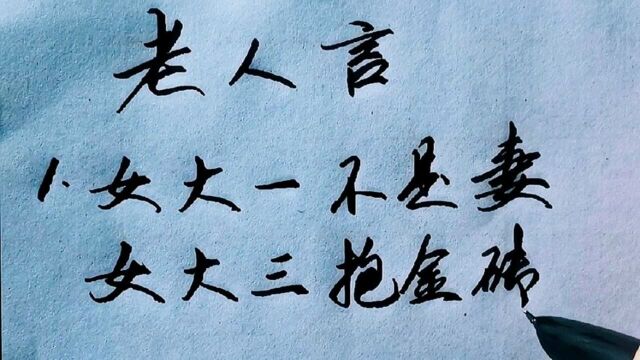 老人言
1.女大一不是妻
女大三抱金砖